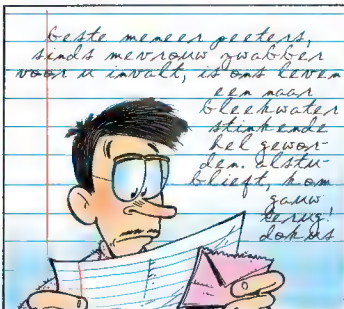 beste meneer peeters,
sinds mevrouw zwabber
voor u invalt, is ons leven
een naar
bleekwater
stinkende
hel gewor-
den. alstu-
blieft, kom
gauw
terug!
dokus